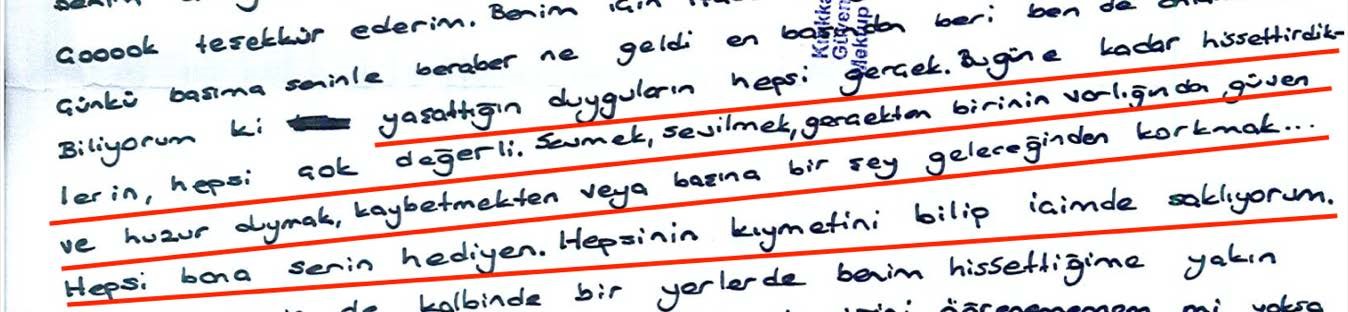 Çooook teşekkür ederim. Benim için
Çünkü başıma seninle beraber ne geldi en başından beri ben de
Biliyorum ki yaşattığın duyguların hepsi gerçek. Bugüne kadar hissettirdik-
lerin, hepsi çok değerli. Sevmek, sevilmek, gerçekten birinin varlığında, güven
ve huzur duymak, kaybetmekten veya başına bir şey geleceğinden korkmak...
Hepsi bana senin hediyen. Hepsinin kıymetini bilip içimde saklıyorum.
de kalbinde bir yerlerde benim hissettiğime yakın
öğrenememem mi yoksa
Güven
Mektup